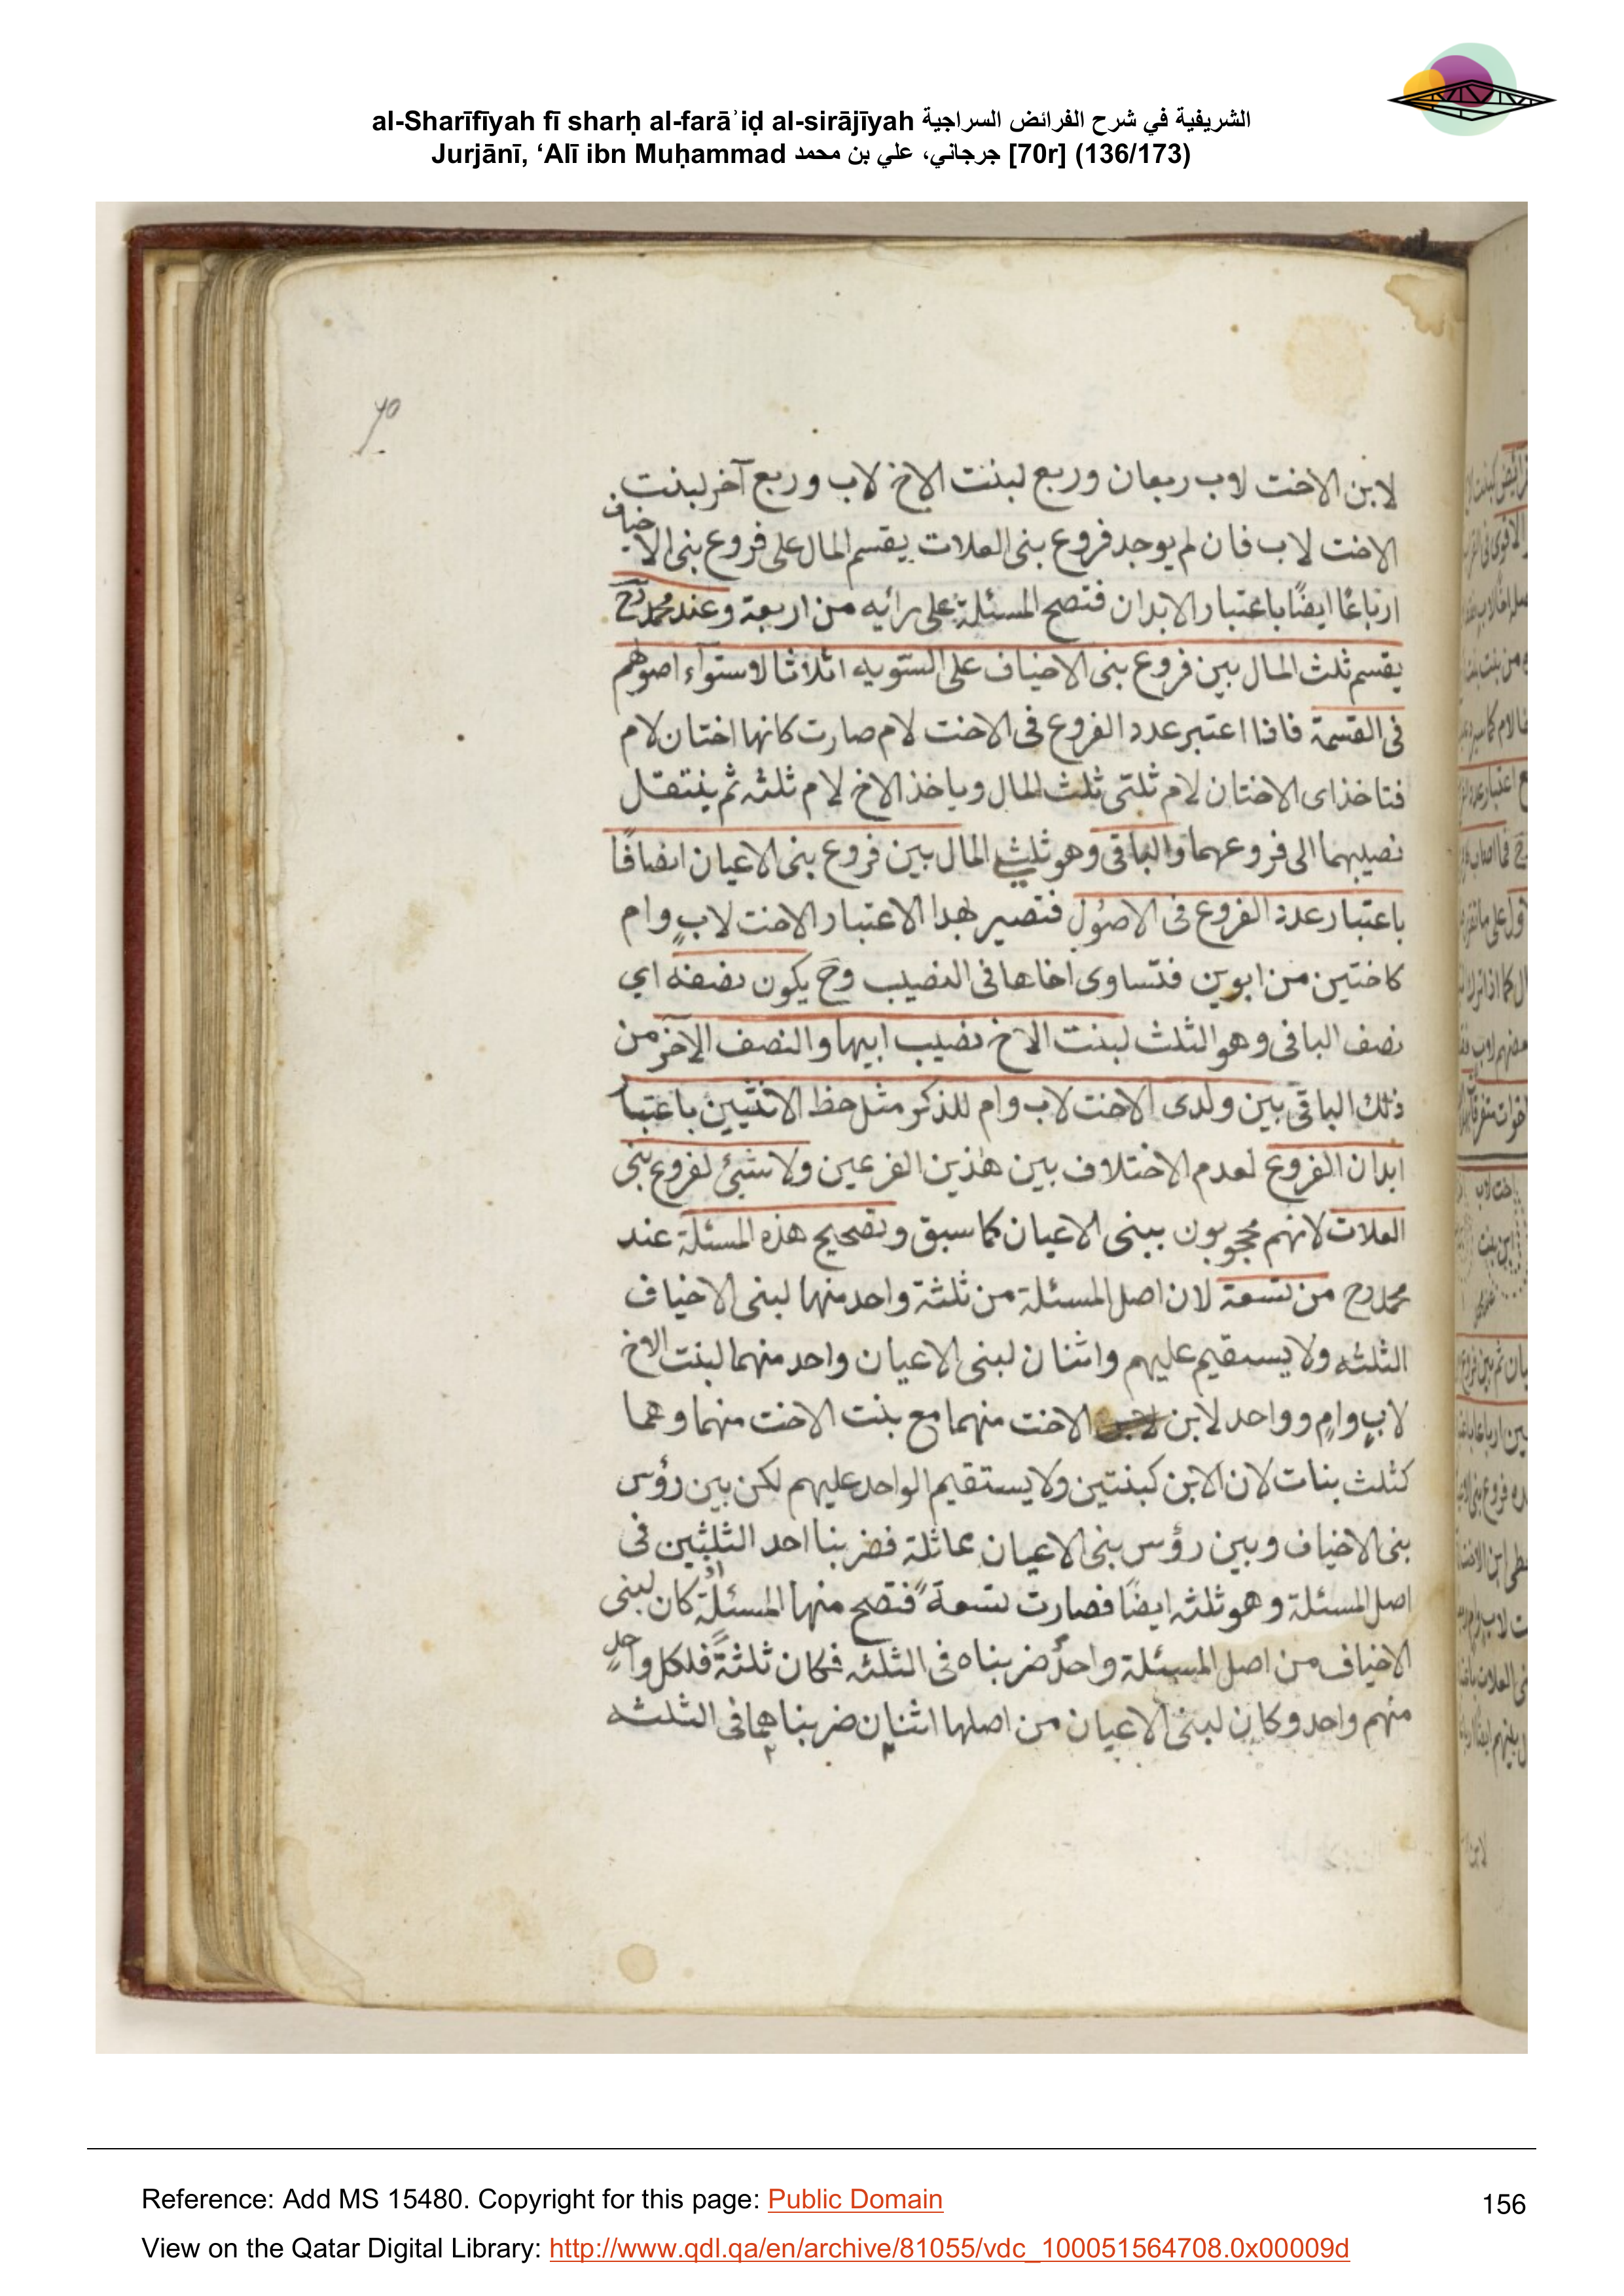 al-Sharīfīyah fī sharḥ al-farāʾiḍ al-sirājīyah الشريفية في شرح الفرائض السراجية
Jurjānī, ‘Alī ibn Muḥammad جرجاني، علي بن محمد [70r] (136/173)
70
لابن الاخت لاب ربعان وربع لبنت الاخ لاب وربع آخر لبنت
الاخت لاب فان لم يوجد فروع بنى العلات يقسم المال على فروع بنى الاخياف
ارباعًا ايضًا باعتبار الابدان فتصح المسئلة على رائيه من اربعة وعند محمد رح
يقسم ثلث المال بين فروع بنى الاخياف على السّويه اثلاثا لاستوآء اصولهم
فى القسمة فاذا اعتبر عدد الفروع فى الاخت لام صارت كانها اختان لام
فتاخذ اى الاختان لام ثلثى ثلث المال وياخذ الاخ لام ثلثه ثم ينتقل
نصيبهما الى فروعهما والباقى وهو ثلثى المال بين فروع بنى الاعيان انصافًا
باعتبار عدد الفروع فى الاصُول فتصير بهذا الاعتبار الاخت لابٍ وام
كاختين من ابوين فتساوى اخاها فى النصيب وح يكون نصفه اي
نصف الباقى وهو الثلث لبنت الاخ نصيب ابيها والنصف الآخر من
ذلك الباقى بين ولدى الاخت لاب وام للذكر مثل حظ الانثيين باعتبا
ابدان الفروع لعدم الاختلاف بين هذين الفرعين ولا شيئ لفروع بنى
العلات لانهم محجوبون ببنى الاعيان كما سبق وتصحيح هذه المسئلة عند
محمد رح من تسعة لان اصل المسئلة من ثلثة واحد منها لبنى الاخياف
الثلثه ولا يستقيم عليهم واثنان لبنى الاعيان واحد منهما لبنت الاخ
لابٍ وامٍ وواحد لابن الاخت منهما مع بنت الاخت منهما وهما
كثلث بنات لان الابن كبنتين ولا يستقيم الواحد عليهم لكن بين رؤس
بنى الاخياف وبين رؤس بنى الاعيان مماثلة فضربنا احد الثلثين فى
اصل المسئلة وهو ثلثه ايضًا فصارت تسعةً فتصح منها المسئلة كان لبنى
الاخياف من اصل المسئلة واحدٌ ضربناه فى الثلثه فكان ثلثةً فلكل واحدٍ
منهم واحد وكان لبنى الاعيان من اصلها اثنان ضربناهما فى الثلثه
Reference: Add MS 15480. Copyright for this page: Public Domain
156
View on the Qatar Digital Library: http://www.qdl.qa/en/archive/81055/vdc_100051564708.0x00009d